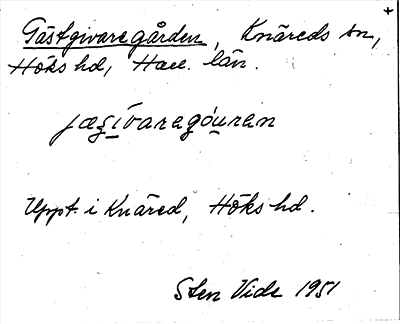 +
Gästgivaregården, Knäreds sn,
Höks hd, Hall. län.
jæsívaregóuren
Uppt. i Knäred, Höks hd.
Sten Vide 1951